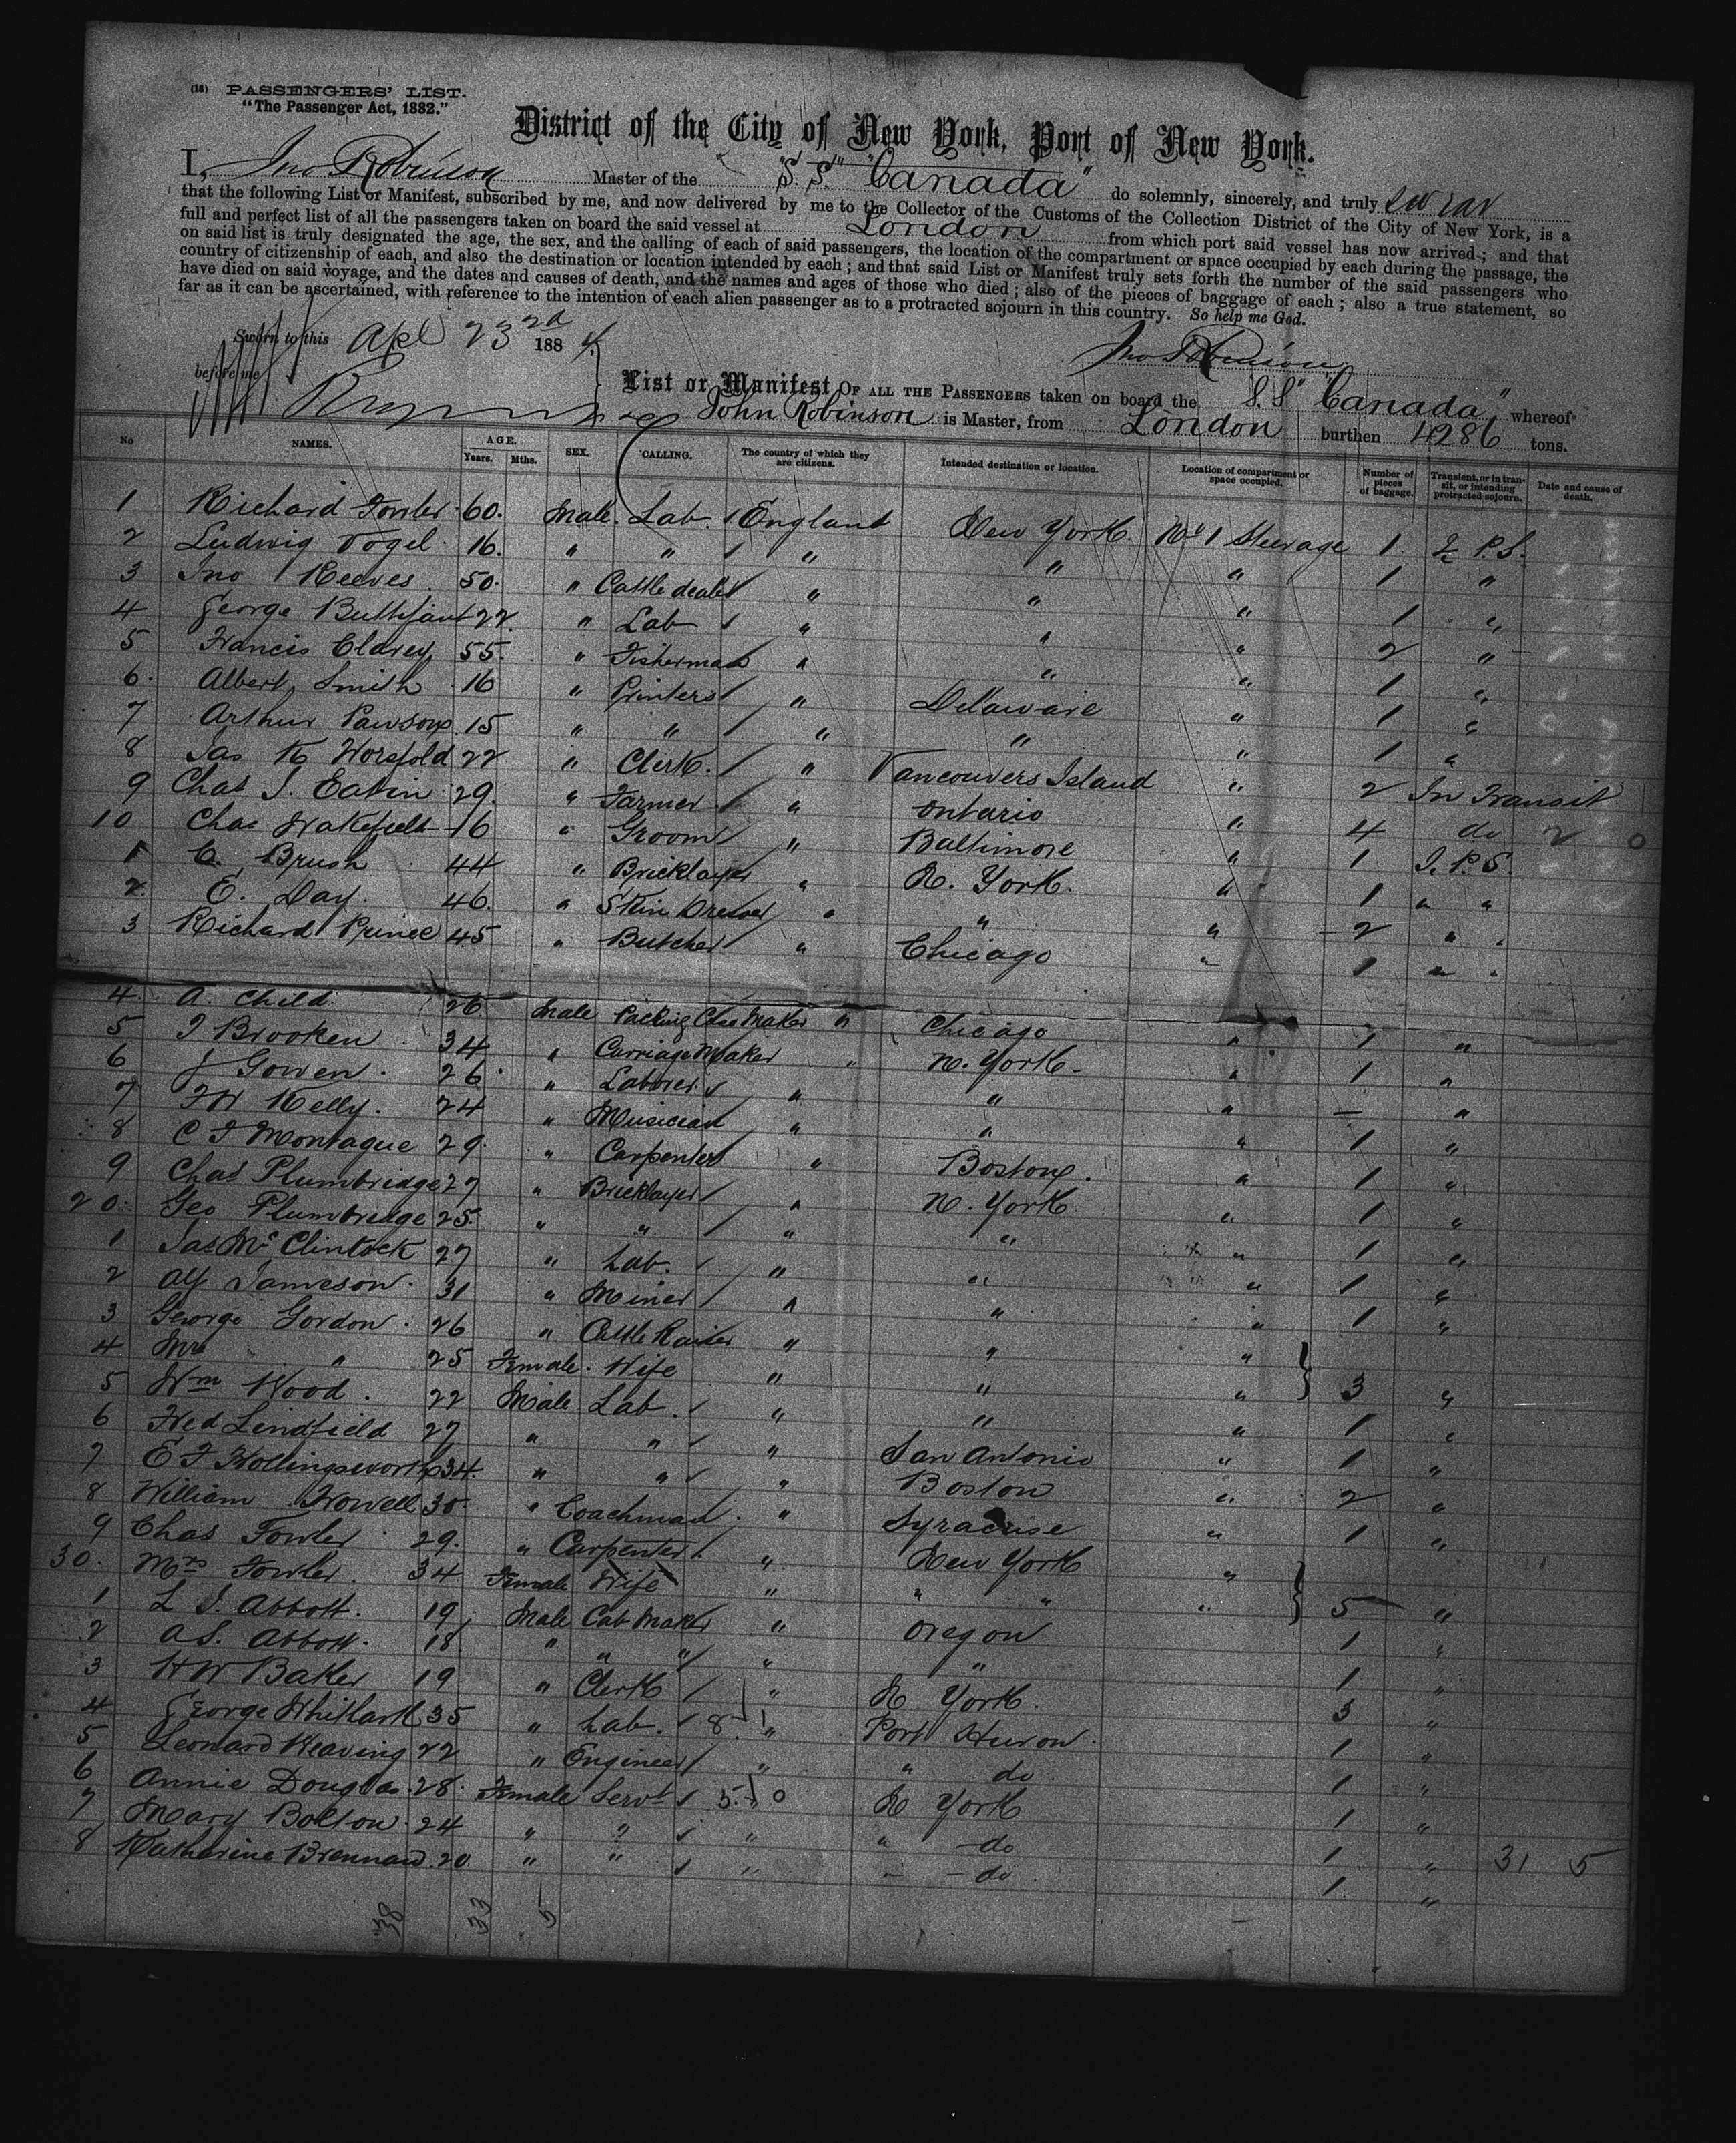 (18) PASSENGERS' LIST.
"The Passenger Act, 1882."
District of the City of New York, Port of New York.
I, Jno Robinson Master of the "S.S." "Canada" do solemnly, sincerely, and truly swear
that the following List or Manifest, subscribed by me, and now delivered by me to the Collector of the Customs of the Collection District of the City of New York, is a
full and perfect list of all the passengers taken on board the said vessel at London from which port said vessel has now arrived; and that
on said list is truly designated the age, the sex, and the calling of each of said passengers, the location of the compartment or space occupied by each during the passage, the
country of citizenship of each, and also the destination or location intended by each; and that said List or Manifest truly sets forth the number of the said passengers who
have died on said voyage, and the dates and causes of death, and the names and ages of those who died; also of the pieces of baggage of each; also a true statement, so
far as it can be ascertained, with reference to the intention of each alien passenger as to a protracted sojourn in this country. So help me God.
Sworn to this Apl 23rd 1884
Jno Robinson
before me
List or Manifest OF ALL THE PASSENGERS taken on board the S.S "Canada" whereof
John Robinson is Master, from London burthen 4286 tons.
No NAMES. AGE. Years. Mths. SEX. CALLING. The country of which they are citizens. Intended destination or location. Location of compartment or space occupied. Number of pieces of baggage. Transient, or in transit, or intending protracted sojourn. Date and cause of death.
1 Richard Fowler 60. Male. Lab. England New York. No 1 Steerage 1 P.S.
2 Ludwig Vogel 16. " " " " " 1 "
3 Jno Reeves 50. " Cattle dealer " " " 1 "
4 George 22. " Lab " " " 2 "
5 Francis Clarey 55. " Fisherman " " " 1 "
6. Albert Smith 16 " Printers " Delaware " 1 "
7 Arthur Pawson 15 " " " " " 1 "
8 Jas Worsfold 22 " Clerk. " Vancouvers Island " 2 In Transit
9 Chas J. Eakin 29. " Farmer " Ontario " 4 do 2 0
10 Chas Wakefield 16 " Groom " Baltimore " 1 I. P.S.
1 C. Brush 44 " Bricklayer " N. York. " 1 " "
2. E. Day. 46. " Skin Dresser " " " 2 " "
3 Richard Prince 45 " Butcher " Chicago " 1 " "
4. A. Child 26 Male Packing Case Maker " Chicago " 1 "
5 J Brooken 34 " Carriage Maker " N. York " 1 "
6 J Gowen 26 " Laborer " " " — "
7 J W Kelly. 24 " Musician " " " 1 "
8 C J Montague 29. " Carpenter " Boston. " 1 "
9 Chas Plumbridge 27 " Bricklayer " N. York " 1 "
20. Geo Plumbridge 25. " " " " " 1 "
1 Jas McClintock 27 " Lab. " " " 1 "
2 Alf Jameson. 31 " Miner " " " 1 "
3 George Gordon. 26 " Cattle Raiser " " "
4 Mrs " 25 Female. Wife " " " 3 "
5 Wm Wood. 22 Male Lab. " " " 1 "
6 Fred Lindfield 27 " " " San Antonio " 1 "
7 E J Hollingsworth 34. " " " Boston " 2 "
8 William Howell 30 " Coachman. " Syracuse " 1 "
9 Chas Fowler 29. " Carpenter " New York "
30. Mrs Fowler. 34 Female Wife " " " " 5 "
1 L J. Abbott. 19 Male Cab Maker " Oregon 1 "
2 A S. Abbott. 18 " " " " " 1 "
3 H W Baker 19 " Clerk " N York. 3 "
4 George Whitlark 35 " Lab. 8 " Port Huron. 1 "
5 Leonard Weaving 22 " Engineer " " do 1 "
6 Annie Douglas. 28. Female Servt 5 0 N York 1 "
7 Mary Bolton. 24 " " " " do 1 " 31 5
8 Katherine Brennan. 20 " " " — do 1. "
38 33 5